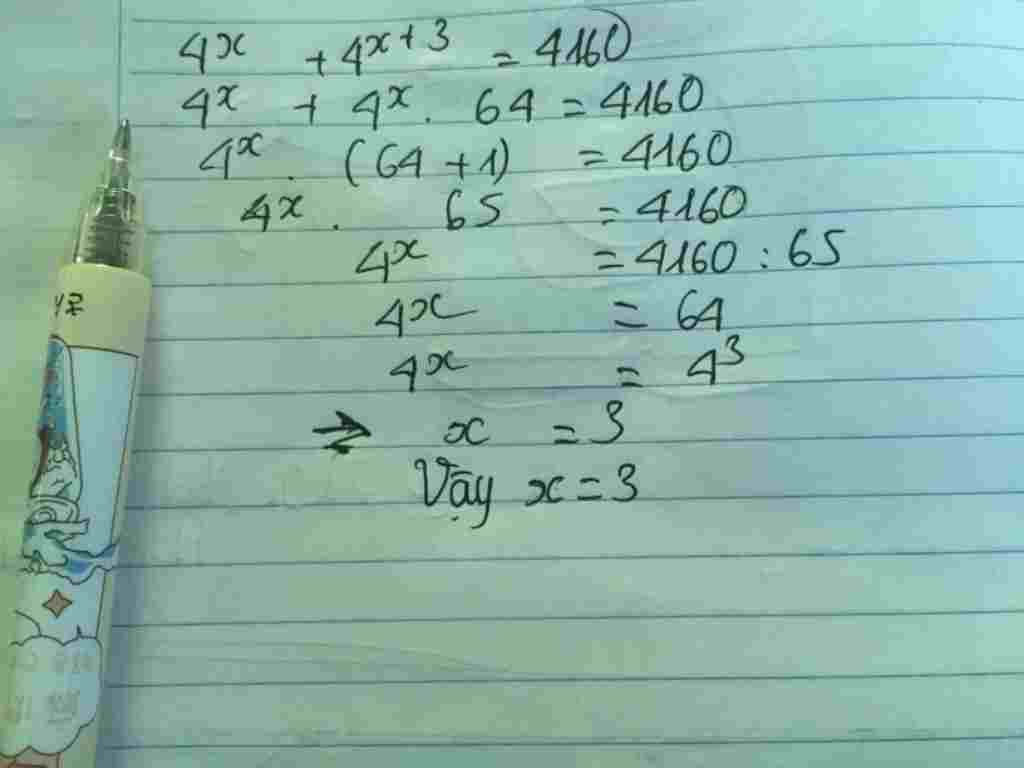 4ˣ + 4ˣ⁺³ = 4160
4ˣ + 4ˣ . 64 = 4160
4ˣ . (64 + 1) = 4160
4ˣ . 65 = 4160
4ˣ = 4160 : 65
4ˣ = 64
4ˣ = 4³
⇒ x = 3
Vậy x = 3